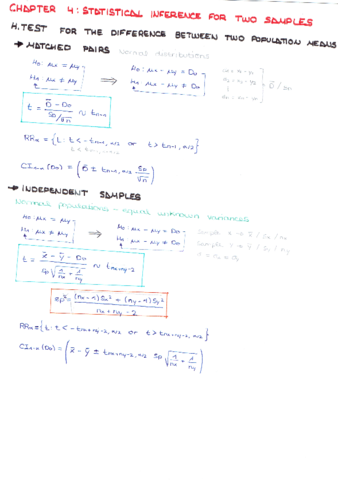 CHAPTER 4: STATISTICAL INFERENCE FOR TWO SAMPLES
H.TEST FOR THE DIFFERENCE BETWEEN TWO POPULATION MEANS
→ MATCHED PAIRS Normal distributions
H₀: μx = μy ⇒ H₀: μx - μy = D₀
H₁: μx ≠ μy H₁: μx - μy ≠ D₀
t = (D̄ - D₀) / (SD/√n) ~ tn-1
RRα = {t: t < -tn-1, α/2 or t > tn-1, α/2}
CI1-α (D₀) = (D̄ ± tn-1, α/2 SD/√n)
→ INDEPENDENT SAMPLES
Normal populations - equal unknown variances
H₀: μx = μy ⇒ H₀: μx - μy = D₀
H₁: μx ≠ μy H₁: μx - μy ≠ D₀
t = (x̄ - ȳ - D₀) / (sp √(1/nx + 1/ny)) ~ tnx+ny-2
sp² = ((nx - 1)Sx² + (ny - 1)Sy²) / (nx + ny - 2)
RRα = {t: t < -tnx+ny-2, α/2 or t > tnx+ny-2, α/2}
CI1-α (D₀) = (x̄ - ȳ ± tnx+ny-2, α/2 sp √(1/nx + 1/ny))